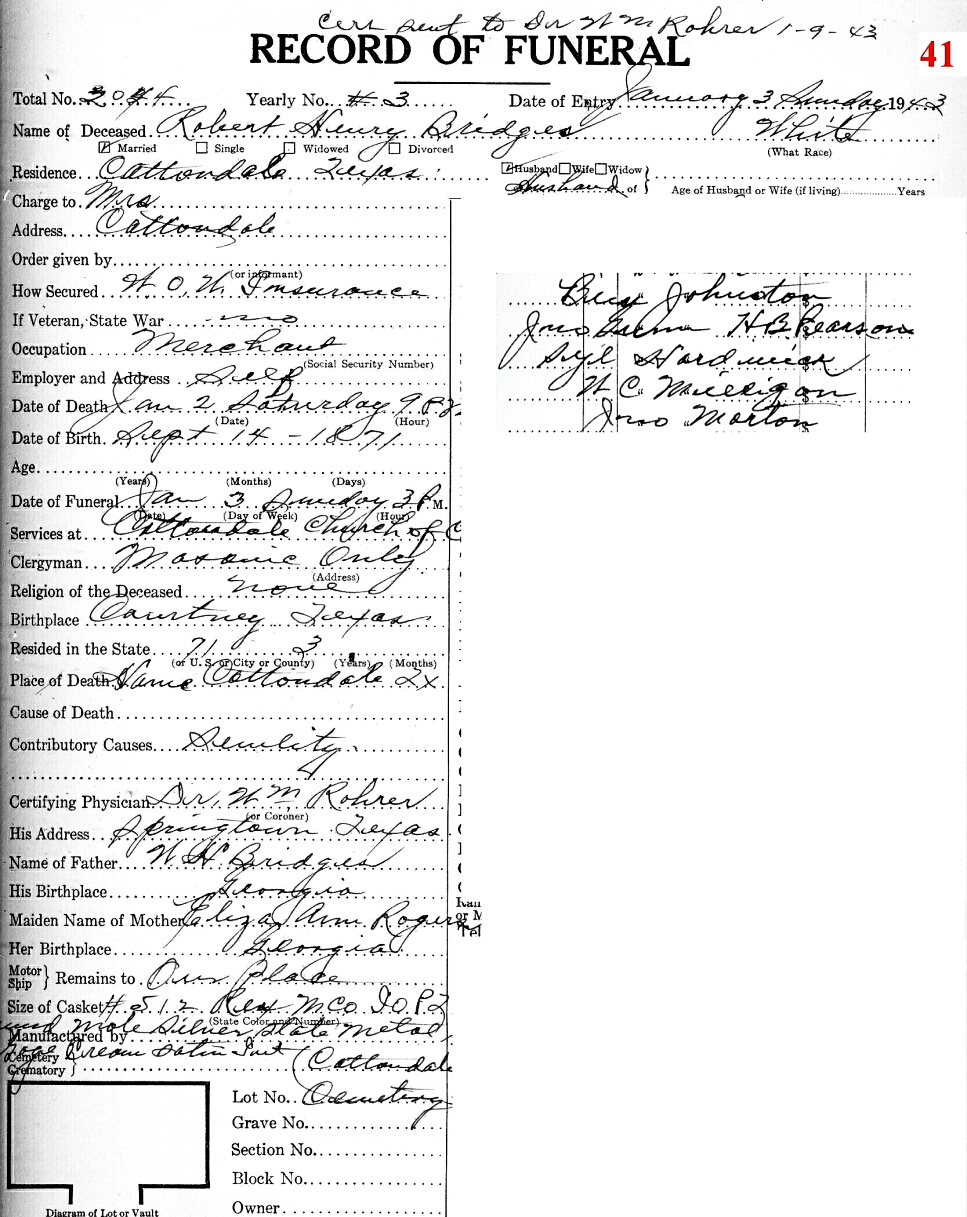 Cert sent to Dr W M Rohrer 1-9-43
RECORD OF FUNERAL
41
Total No. 2044 Yearly No. #3 Date of Entry January 3 Sunday 1943
Name of Deceased Robert Henry Bridges White
Married Single Widowed Divorced (What Race)
Residence Cottondale Texas Husband Wife Widow
Husband of Age of Husband or Wife (if living) Years
Charge to Mrs
Address Cottondale
Order given by
(or informant)
How Secured W.O.W. Insurance
If Veteran, State War no
Occupation Merchant
(Social Security Number)
Employer and Address Self
Date of Death Jan 2 Saturday 9 P
(Date) (Hour)
Date of Birth Sept 14 - 1871
Age
(Years) (Months) (Days)
Date of Funeral Jan 3 Sunday 3 P. M.
(Date) (Day of Week) (Hour)
Services at Cottondale Church of C
Clergyman Masonic Only
(Address)
Religion of the Deceased none
Birthplace Courtney Texas
Resided in the State 71 3
(or U. S. or City or County) (Years) (Months)
Place of Death Home Cottondale Tx
Cause of Death
Contributory Causes Senility
Certifying Physician Dr. W M Rohrer
(or Coroner)
His Address Springtown Texas
Name of Father W H Bridges
His Birthplace Georgia
Maiden Name of Mother Eliza Ann Rogers
Her Birthplace Georgia
Motor Ship Remains to Our Place
Size of Casket # 512 Rex M Co
(State Color and Number)
Mole Silver State Metal
Manufactured by
Cream Satin Suit
Cemetery Crematory (Cottondale
Lot No. Cemetery
Grave No.
Section No.
Block No.
Owner
Diagram of Lot or Vault
Johnston
Jno H B Pearson
Syl Hardwick
W C Milligan
Jno Morton